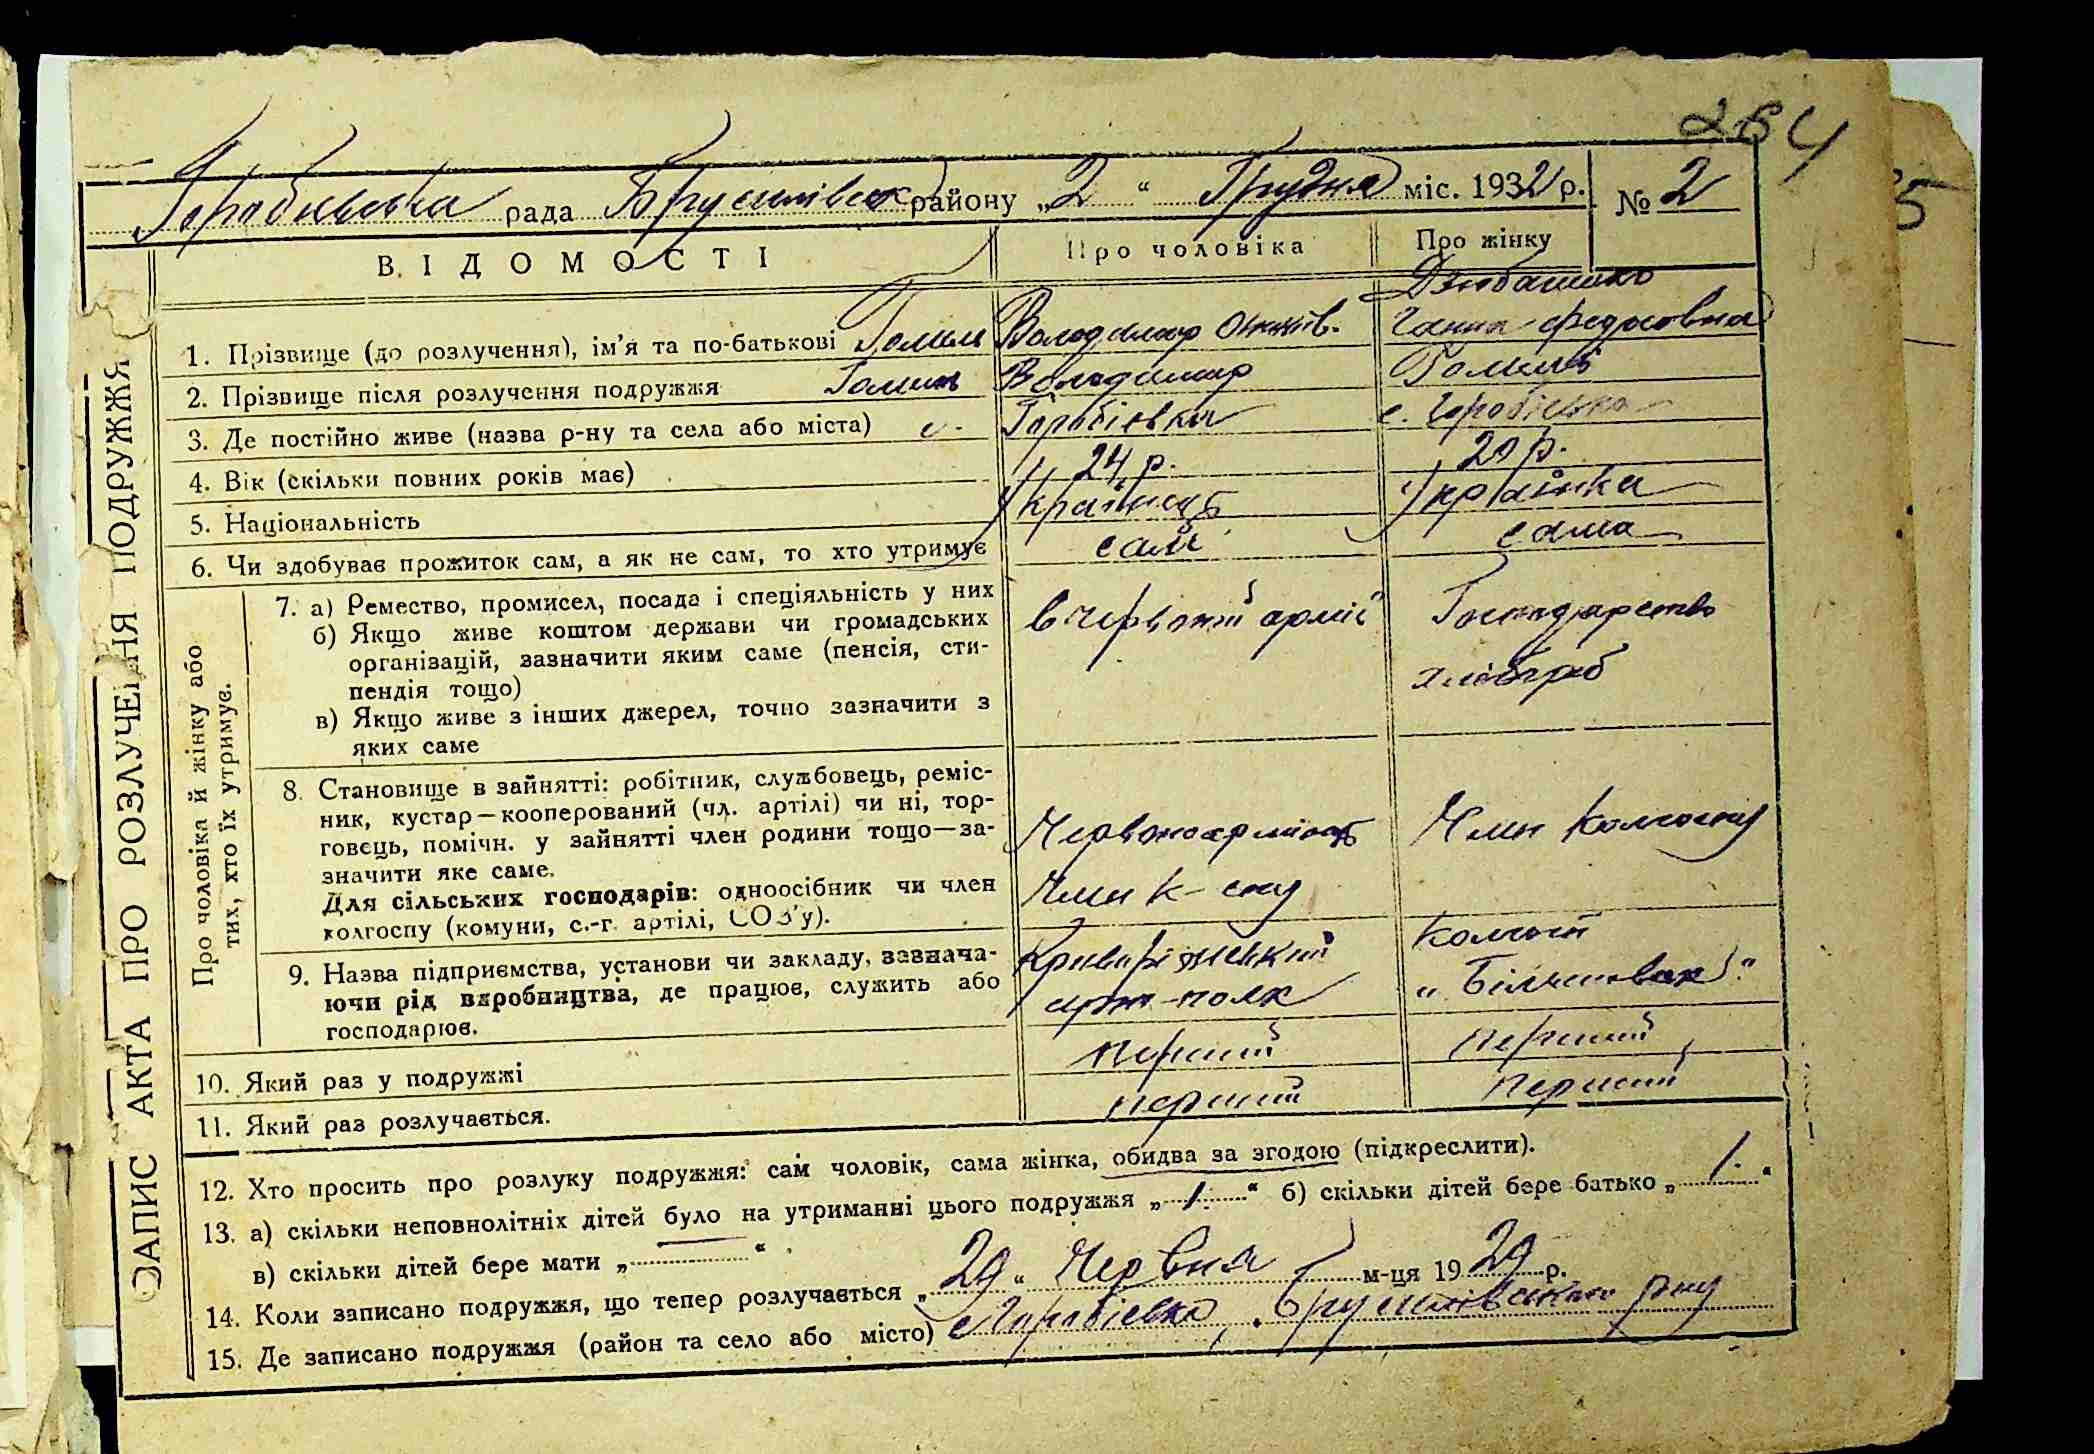 264
рада Брусилівськ району „2“ Грудня міс. 1932 р. № 2
ВІДОМОСТІ Про чоловіка Про жінку
ЗАПИС АКТА ПРО РОЗЛУЧЕННЯ ПОДРУЖЖЯ
1. Прізвище (до розлучення), ім'я та по-батькові Володимир Ганна Федосовна
2. Прізвище після розлучення подружжя Володимир
3. Де постійно живе (назва р-ну та села або міста) с. Горобіевка с. Горобіевка
4. Вік (скільки повних років має) 24 р. 20 р.
5. Національність Українець Українка
6. Чи здобуває прожиток сам, а як не сам, то хто утримує сам сама
Про чоловіка й жінку або
тих, хто їх утримує.
7. а) Ремество, промисел, посада і спеціяльність у них
б) Якщо живе коштом держави чи громадських
організацій, зазначити яким саме (пенсія, сти-
пендія тощо)
в) Якщо живе з інших джерел, точно зазначити з
яких саме
в Червоній армії
Господарство
хлібороб
8. Становище в зайнятті: робітник, службовець, реміс-
ник, кустар—кооперований (чл. артілі) чи ні, тор-
говець, помічн. у зайнятті член родини тощо—за-
значити яке саме.
Для сільських господарів: одноосібник чи член
колгоспу (комуни, с.-г. артілі, СОЗ'у).
Червоноармієць
Член к-спу
Член колгоспу
9. Назва підприємства, установи чи закладу, зазнача-
ючи рід виробництва, де працює, служить або
господарює.
Криворіжський
арт-полк
Колгосп
„Більшовик“
10. Який раз у подружжі перший перший
11. Який раз розлучається. перший перший
12. Хто просить про розлуку подружжя: сам чоловік, сама жінка, обидва за згодою (підкреслити).
13. а) скільки неповнолітніх дітей було на утриманні цього подружжя „1.“ б) скільки дітей бере батько „1.“
в) скільки дітей бере мати „ “
14. Коли записано подружжя, що тепер розлучається „29“ Червня м-ця 1929 р.
15. Де записано подружжя (район та село або місто) с Горобіевка, Брусилівського рну